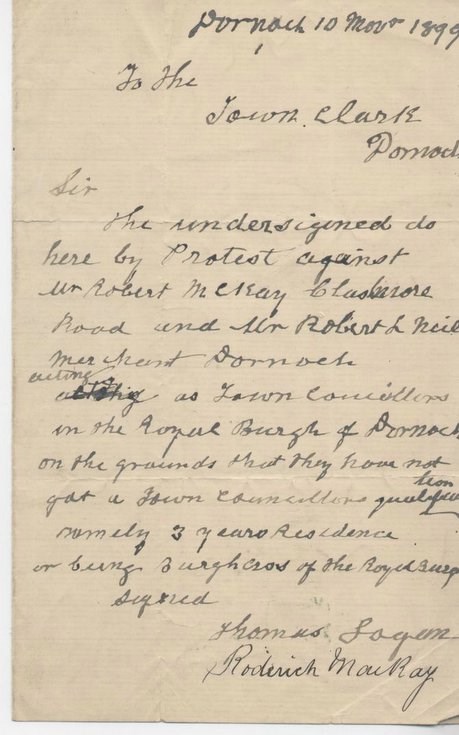 Dornoch 10 Novr 1899
To the
Town Clark
Dornoch
Sir
the undersigned do
here by Protest against
Mr Robert McKay Clashmore
Road and Mr Robert L Neil
merchant Dornoch
acting
as Town Councillors
in the Royal Burgh of Dornoch
on the grounds that they have not
tion
got a Town Councillors qualifica
namely 3 years Residence
or being Burghess of the Royal Burg
signed
Thomas Logan
Roderick MacKay